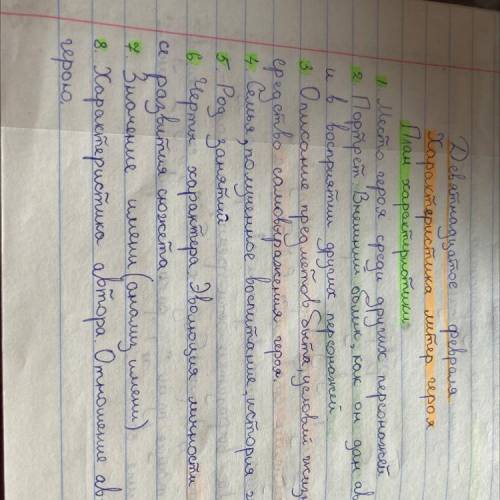 Девятнадцатое февраля
Характеристика литер героя
План характеристики.
1. Место героя среди других персонажей
2. Портрет. Внешний облик, как он дан ав
и в восприятии других персонажей
3. Описание предметов быта, условий жиз
средство самовыражения героя.
4. Семья, полученное воспитание, история
5. Род занятий
6. Черты характера. Эволюция личности
се развития сюжета.
7. Значение имени (анализ имени)
8. Характеристика автора. Отношение ав
герою